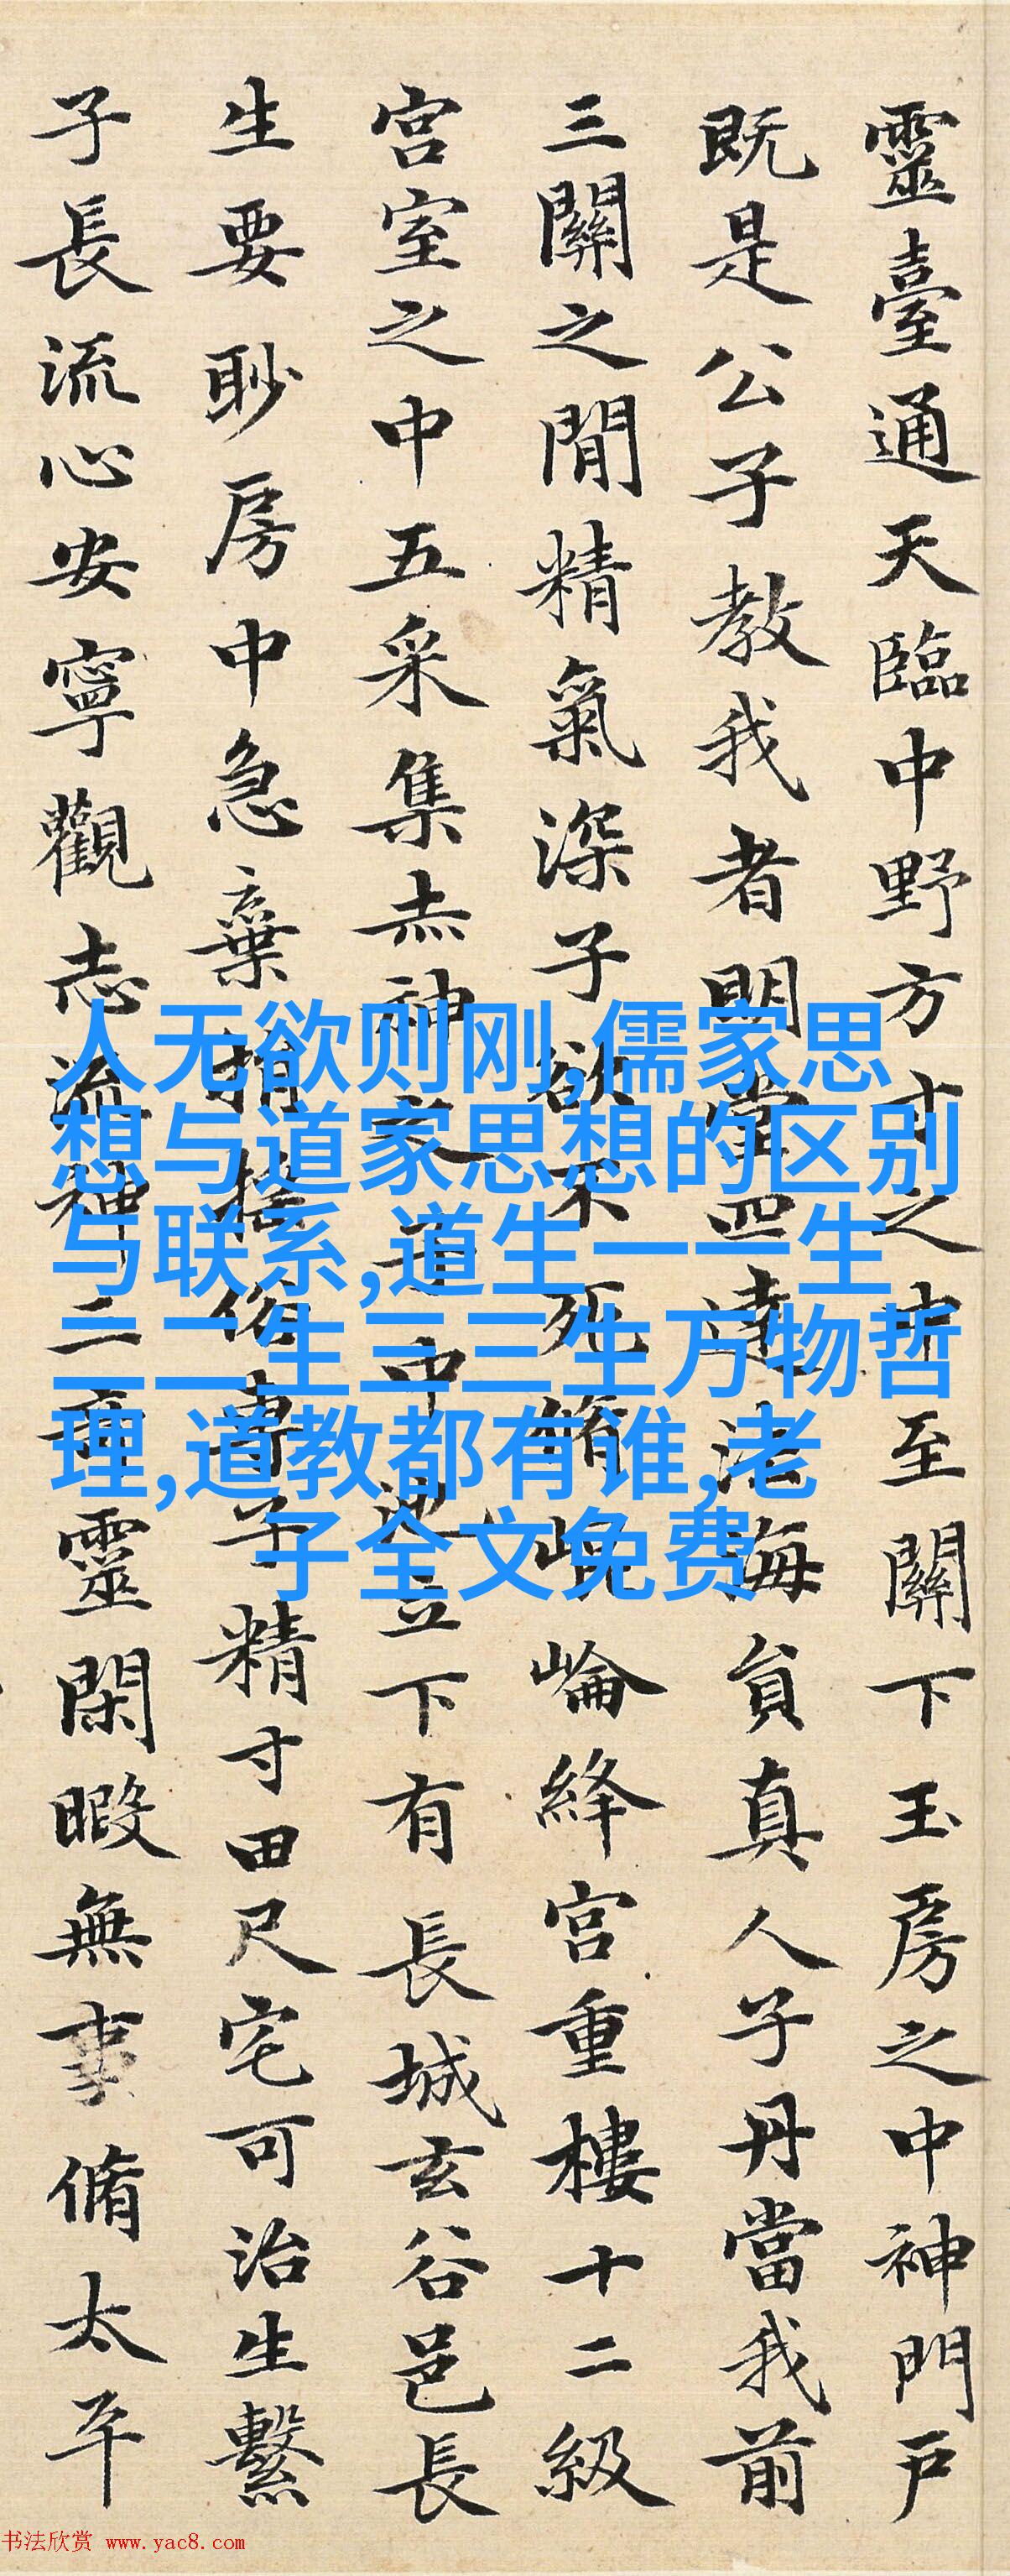 靈臺通天臨中野方寸之中至關下玉房之中神門戶
既是公子教我者明堂四達法海負真人子丹當我前
三關之間精氣深子欲不死脩崐崘絳宮重樓十二級
宮室之中五采集赤神之子中池立下有長城玄谷邑長
生要眇房中急棄捐搖俗專子精寸田尺宅可治生繫
子長流心安寧觀志流神三奇靈閑暇無事脩太平
人无欲则刚,儒家思
想与道家思想的区别
与联系,道生一一生
二二生三三生万物哲
理,道教都有谁,老
子全文免费
书法欣赏 www.yac8.com